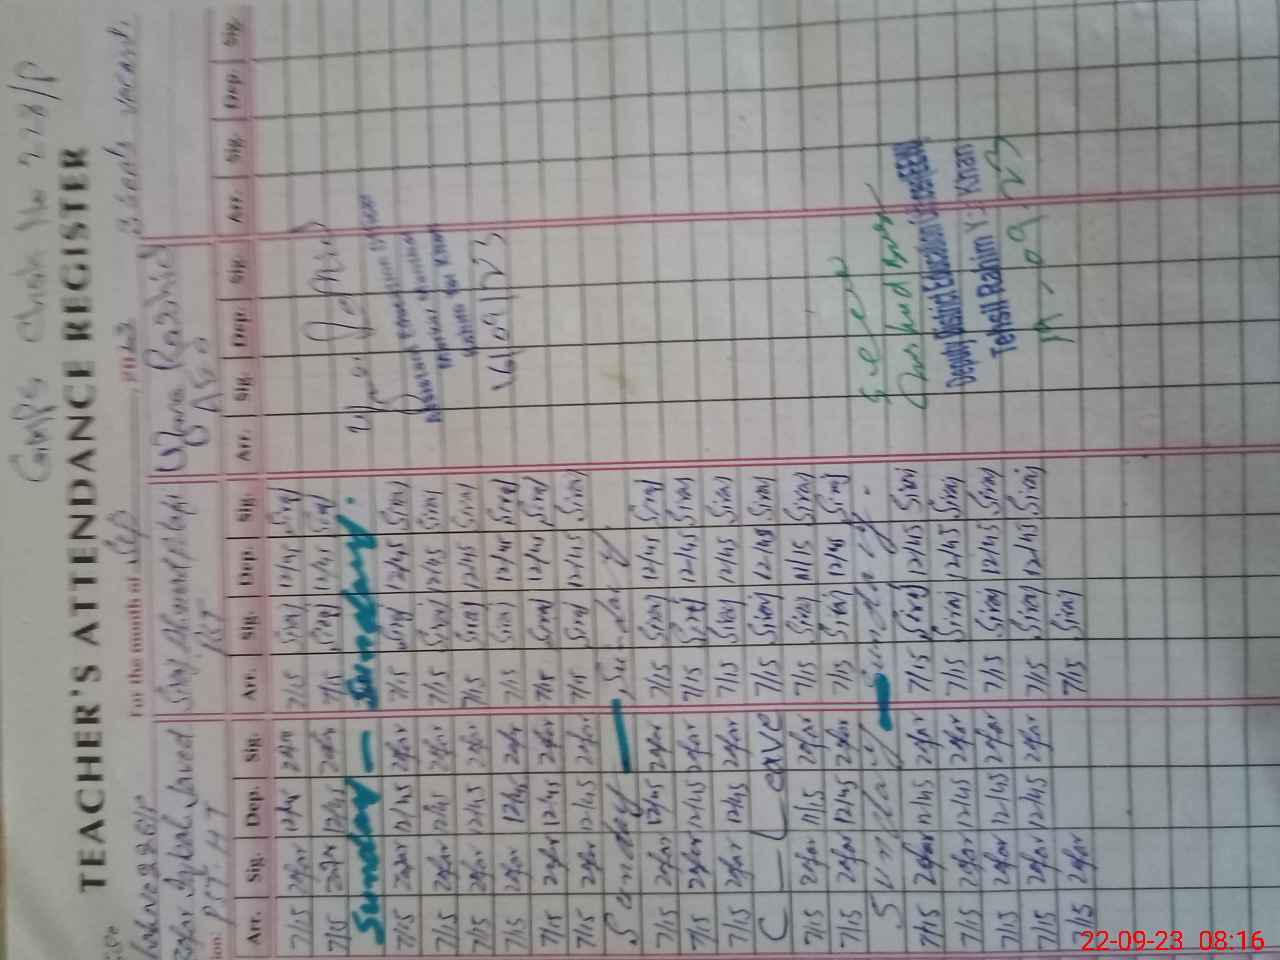 GMPS Chak No 228/P
TEACHER'S ATTENDANCE REGISTER
For the month of Sep 2023
Zafar Iqbal Javed
PST. HT
Uzma Rashid
AEO
Arr. Sig. Dep. Sig. Arr. Sig. Dep. Sig. Arr. Sig. Dep. Sig. Arr. Sig. Dep. Sig.
7/15 Zafar 12/45 Zafar 7/15 Siraj 12/45 Siraj
7/15 Zafar 12/45 Zafar 7/15 Siraj 12/45 Siraj
Sunday — Sunday.
7/15 Zafar 12/45 Zafar 7/15 Siraj 12/45 Siraj
7/15 Zafar 12/45 Zafar 7/15 Siraj 12/45 Siraj
7/15 Zafar 12/45 Zafar 7/15 Siraj 12/45 Siraj
7/15 Zafar 12/45 Zafar 7/15 Siraj 12/45 Siraj
7/15 Zafar 12/45 Zafar 7/15 Siraj 12/45 Siraj
7/15 Zafar 12/45 Zafar 7/15 Siraj 12/45 Siraj
Sunday — Sunday
7/15 Zafar 12/45 Zafar 7/15 Siraj 12/45 Siraj
7/15 Zafar 12/45 Zafar 7/15 Siraj 12/45 Siraj
7/15 Zafar 12/45 Zafar 7/15 Siraj 12/45 Siraj
C — Leave 7/15 Siraj 12/45 Siraj
7/15 Zafar 11/15 Zafar 7/15 Siraj 11/15 Siraj
7/15 Zafar 12/45 Zafar 7/15 Siraj 12/45 Siraj
Sunday — Sunday.
7/15 Zafar 12/45 Zafar 7/15 Siraj 12/45 Siraj
7/15 Zafar 12/45 Zafar 7/15 Siraj 12/45 Siraj
7/15 Zafar 12/45 Zafar 7/15 Siraj 12/45 Siraj
7/15 Zafar 12/45 Zafar 7/15 Siraj 12/45 Siraj
7/15 Zafar 7/15 Siraj
Assistant Education Officer
Rahim Yar Khan
16/09/23
Seen
Deputy District Education Officer
Tehsil Rahim Y Khan
22-09-23 08:16